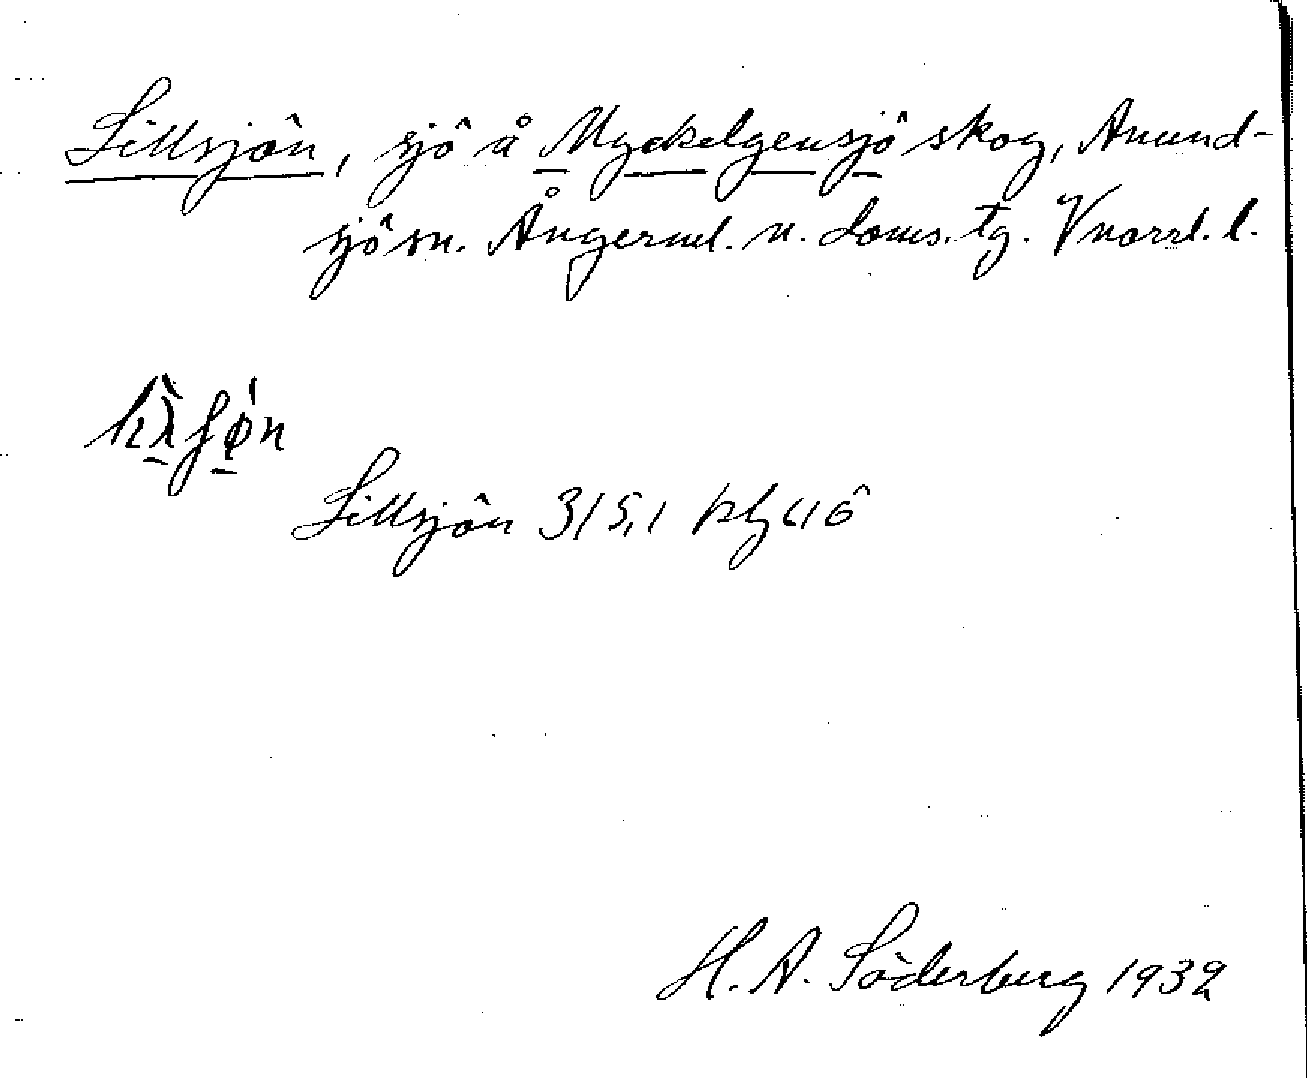 Lillsjön, sjö å Myckelgensjö skog, Anund-
sjö sn. Ångerml. n. doms. tg. Vnorrl. l.
Lillsjön 3/5,1
H. A. Söderberg 1932